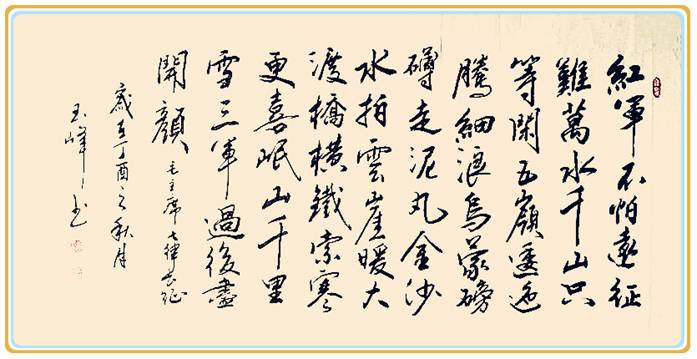 紅軍不怕遠征
難萬水千山只
等閑五嶺逶迤
騰細浪烏蒙磅
礴走泥丸金沙
水拍雲崖暖大
渡橋橫鐵索寒
更喜岷山千里
雪三軍過後盡
開顏
毛主席七律長征
歲在丁酉之秋月
玉峰书